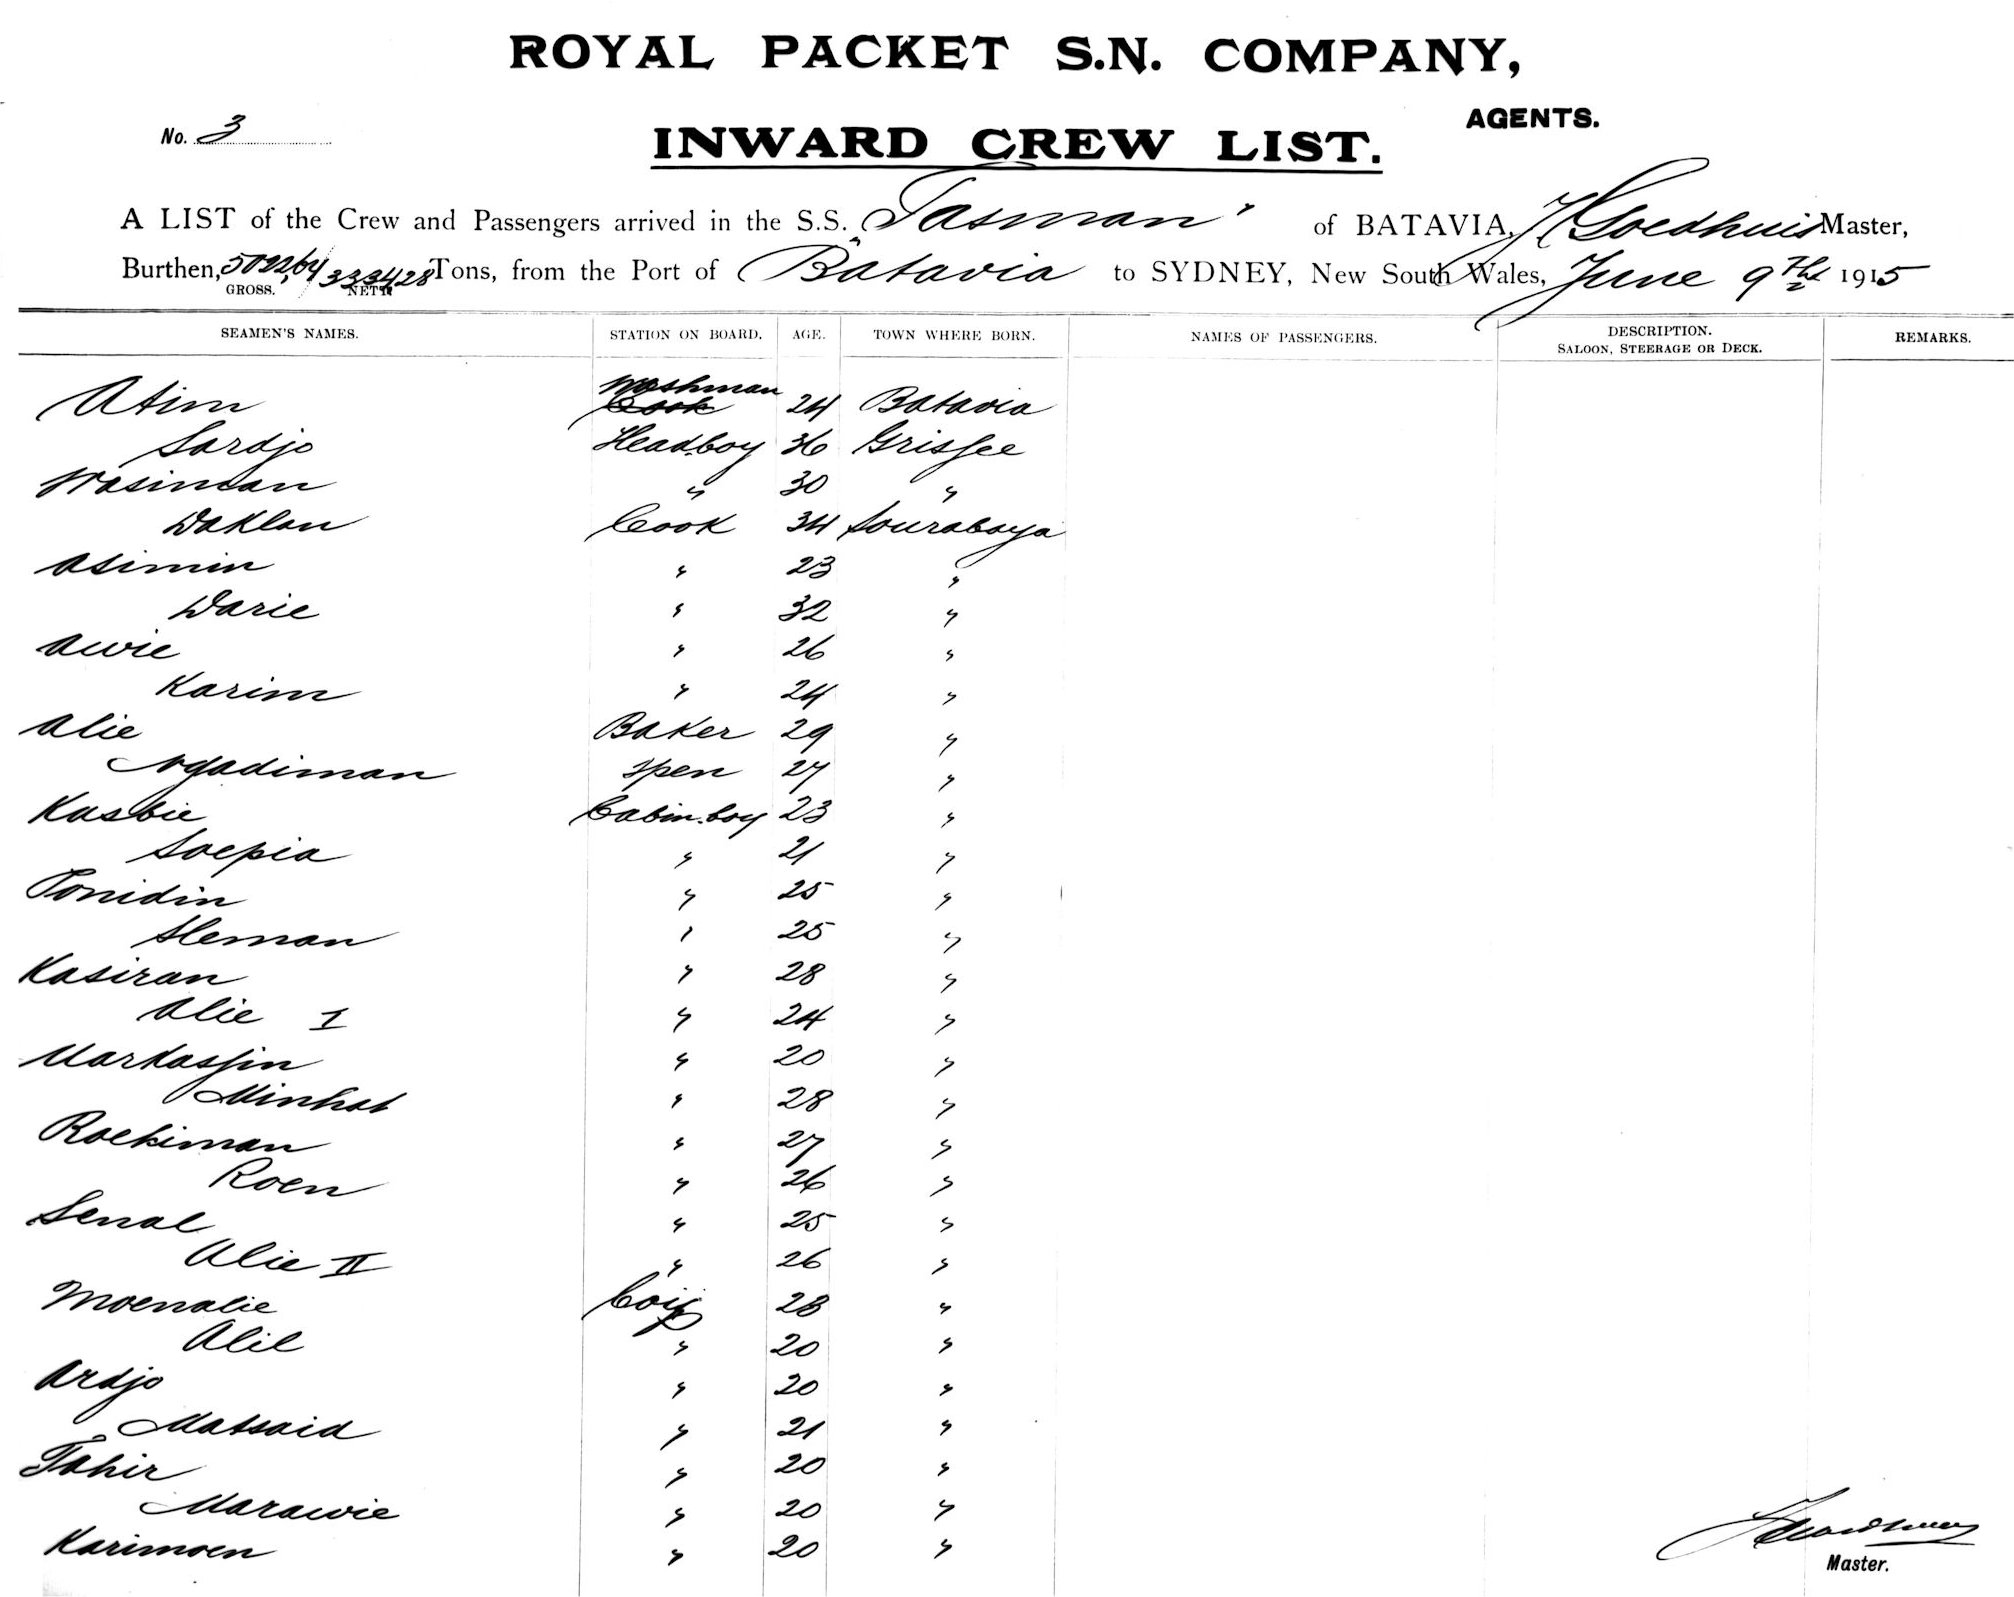 ROYAL PACKET S.N. COMPANY,
AGENTS.
No. 3
INWARD CREW LIST.
A LIST of the Crew and Passengers arrived in the S.S. "Tasman" of BATAVIA, Goedhuis Master,
Burthen, GROSS. NETT Tons, from the Port of Batavia to SYDNEY, New South Wales, June 9th 1915
SEAMEN'S NAMES. STATION ON BOARD. AGE. TOWN WHERE BORN. NAMES OF PASSENGERS. DESCRIPTION. SALOON, STEERAGE OR DECK. REMARKS.
Atim Washman Cook 24 Batavia
Sardjo Headboy 36 Grissee
Wasiman " 30 "
Daklan Cook 34 Sourabaya
Asimin " 23 "
Darie " 32 "
Awie " 26 "
Karim " 24 "
Alie Baker 29 "
Ngadiman Spen 27 "
Kasbie Cabin-boy 23 "
Soepia " 21 "
Ponidin " 25 "
Sleman " 25 "
Kasiran " 28 "
Alie I " 24 "
Markassin " 20 "
Minhat " 28 "
Roekiman " 27 "
Roen " 26 "
Senal " 25 "
Alie II " 26 "
Moenalie 28 "
Alil " 20 "
Ardjo " 20 "
Matsaid " 21 "
Tahir " 20 "
Marawie " 20 "
Karimoen " 20 "
Master.